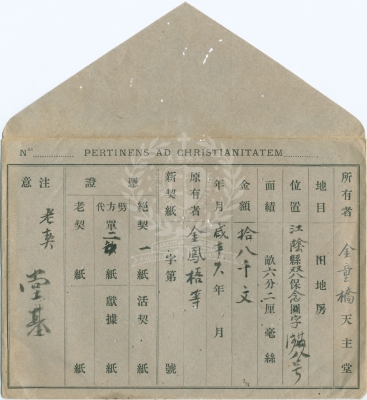 N° PERTINENS AD CHRISTIANITATEM
所有者 金童橋天主堂
地目 田地房
位置 江陰縣八保念圖字號
面積 畝六分二厘毫絲
金額 拾八千文
年月 咸豐六年 月
原有者 金鳳梧等
新契紙 字第 號
證憑
絕契一紙活契 紙
方單二紙獻據 紙
老契 紙 紙
注意 老契 堂基